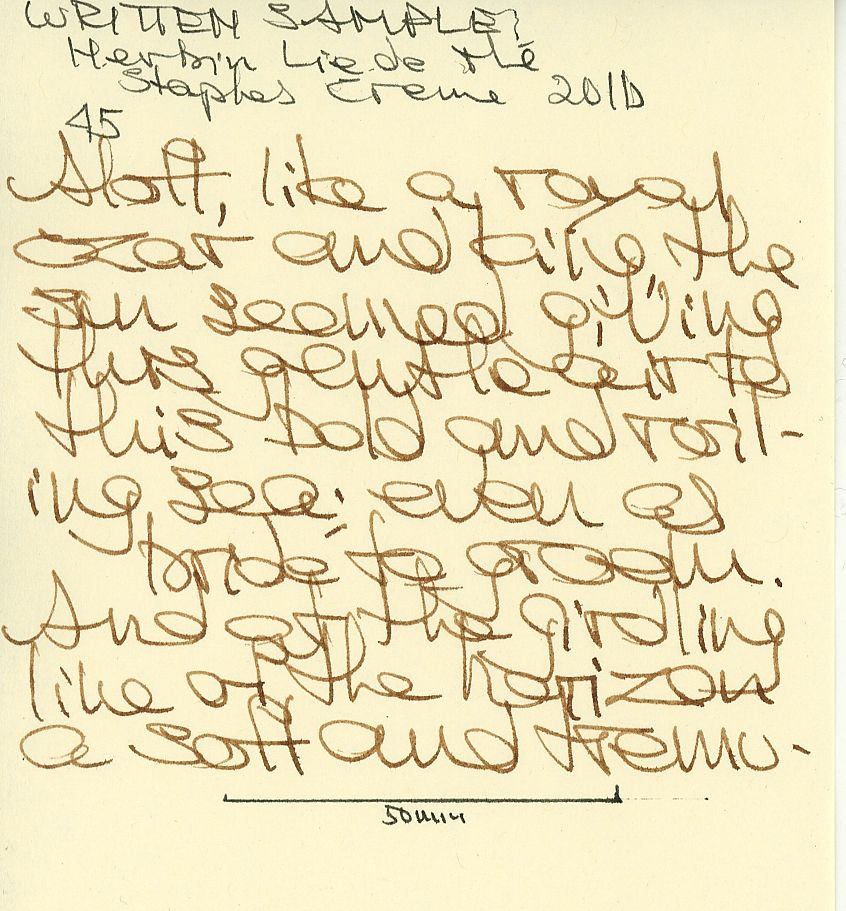 WRITTEN SAMPLE:
Herbin Lie de thé
Staples Creme 201D
45
Aloft, like a royal
czar and king, the
sun seemed giving
this gentle air to
this bold and roil-
ing sea; even as
bride to groom.
And at the girdling
line of the horizon
a soft and tremu-
50mm